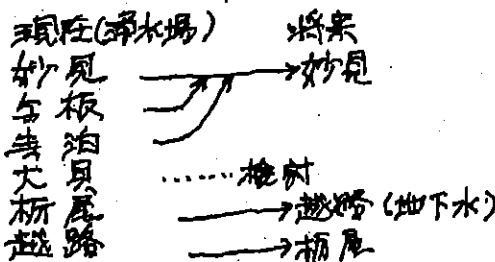 現在(浄水場) 将来
妙見 → 妙見
与板
寺泊
大貝 ……検討
栃尾 → 越路(地下水)
越路 → 栃尾